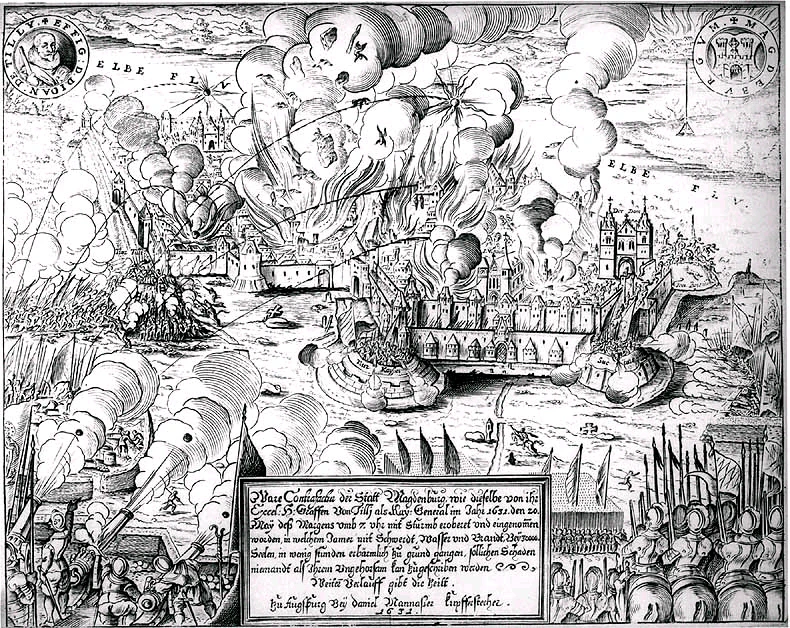 EFFIG D IOAN DE TILLY
ELBE FLV
MAGDEBVRGVM
ELBE FLV
Ware Contrafactur der Statt Magdenburg, wie dieselbe von ihr
Excel. H. Graffen Von Tilly als Kay. General im Jahr 1631. den 20.
May deß Morgens vmb 7. vhr mit Sturmb erobert vnd eingenomen
worden, in welchem Jamer mit Schwerdt, Wasser vnd Brandt, Bey
Seelen, in wenig stunden erbärmlich zu grund gangen, sollichen Schaden
niemandt als Ihrem Vngehorsam kan zugeschriben werden
Weiter Verlauff gibt die Zeitt.
Zu Augspurg Bey daniel Mannasser kupfferstecher.
1631.